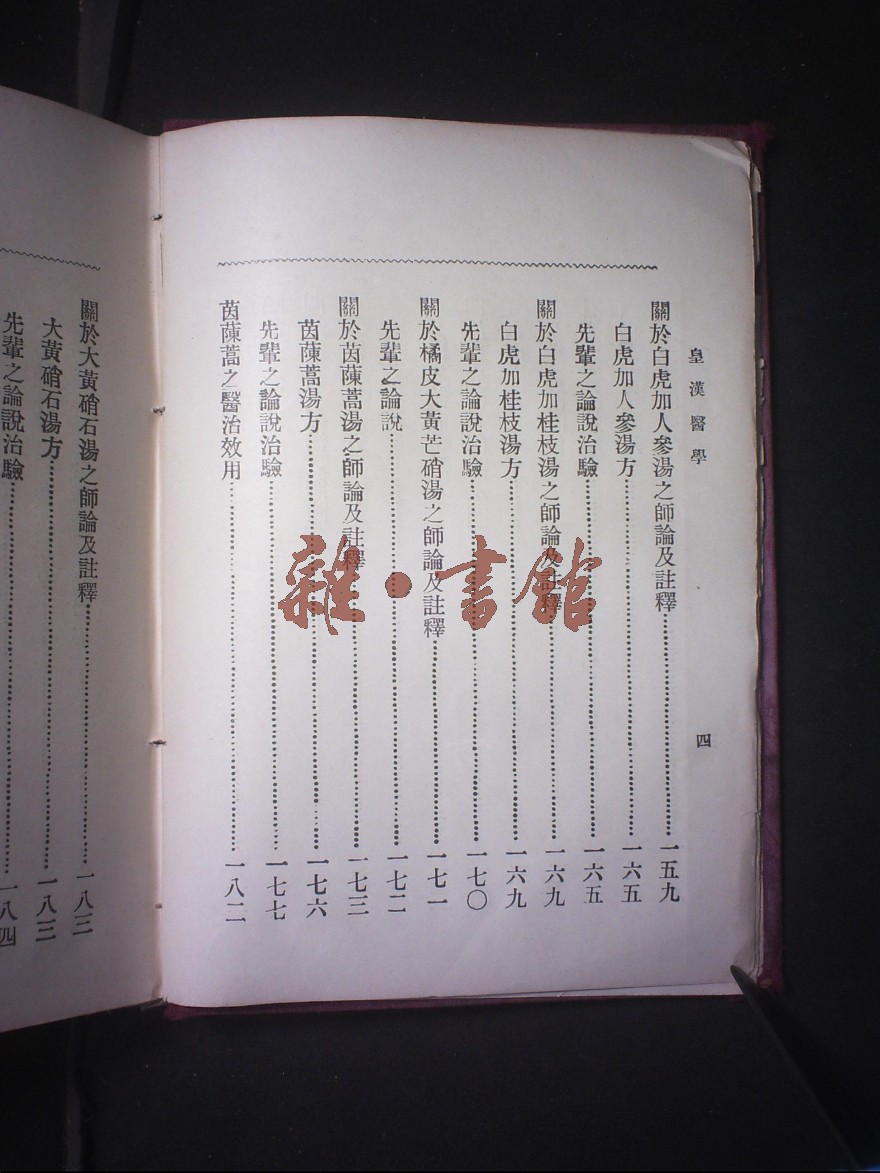 皇漢醫學
四
關於白虎加人參湯之師論及註釋……一五九
白虎加人參湯方……一六五
先輩之論說治驗……一六五
關於白虎加桂枝湯之師論及註釋……一六九
白虎加桂枝湯方……一六九
先輩之論說治驗……一七〇
關於橘皮大黃芒硝湯之師論及註釋……一七一
先輩之論說……一七二
關於茵蔯蒿湯之師論及註釋……一七三
茵蔯蒿湯方……一七六
先輩之論說治驗……一七七
茵蔯蒿之醫治效用……一八二
關於大黃硝石湯之師論及註釋……一八三
大黃硝石湯方……一八三
先輩之論說治驗……一八四
雜·書館